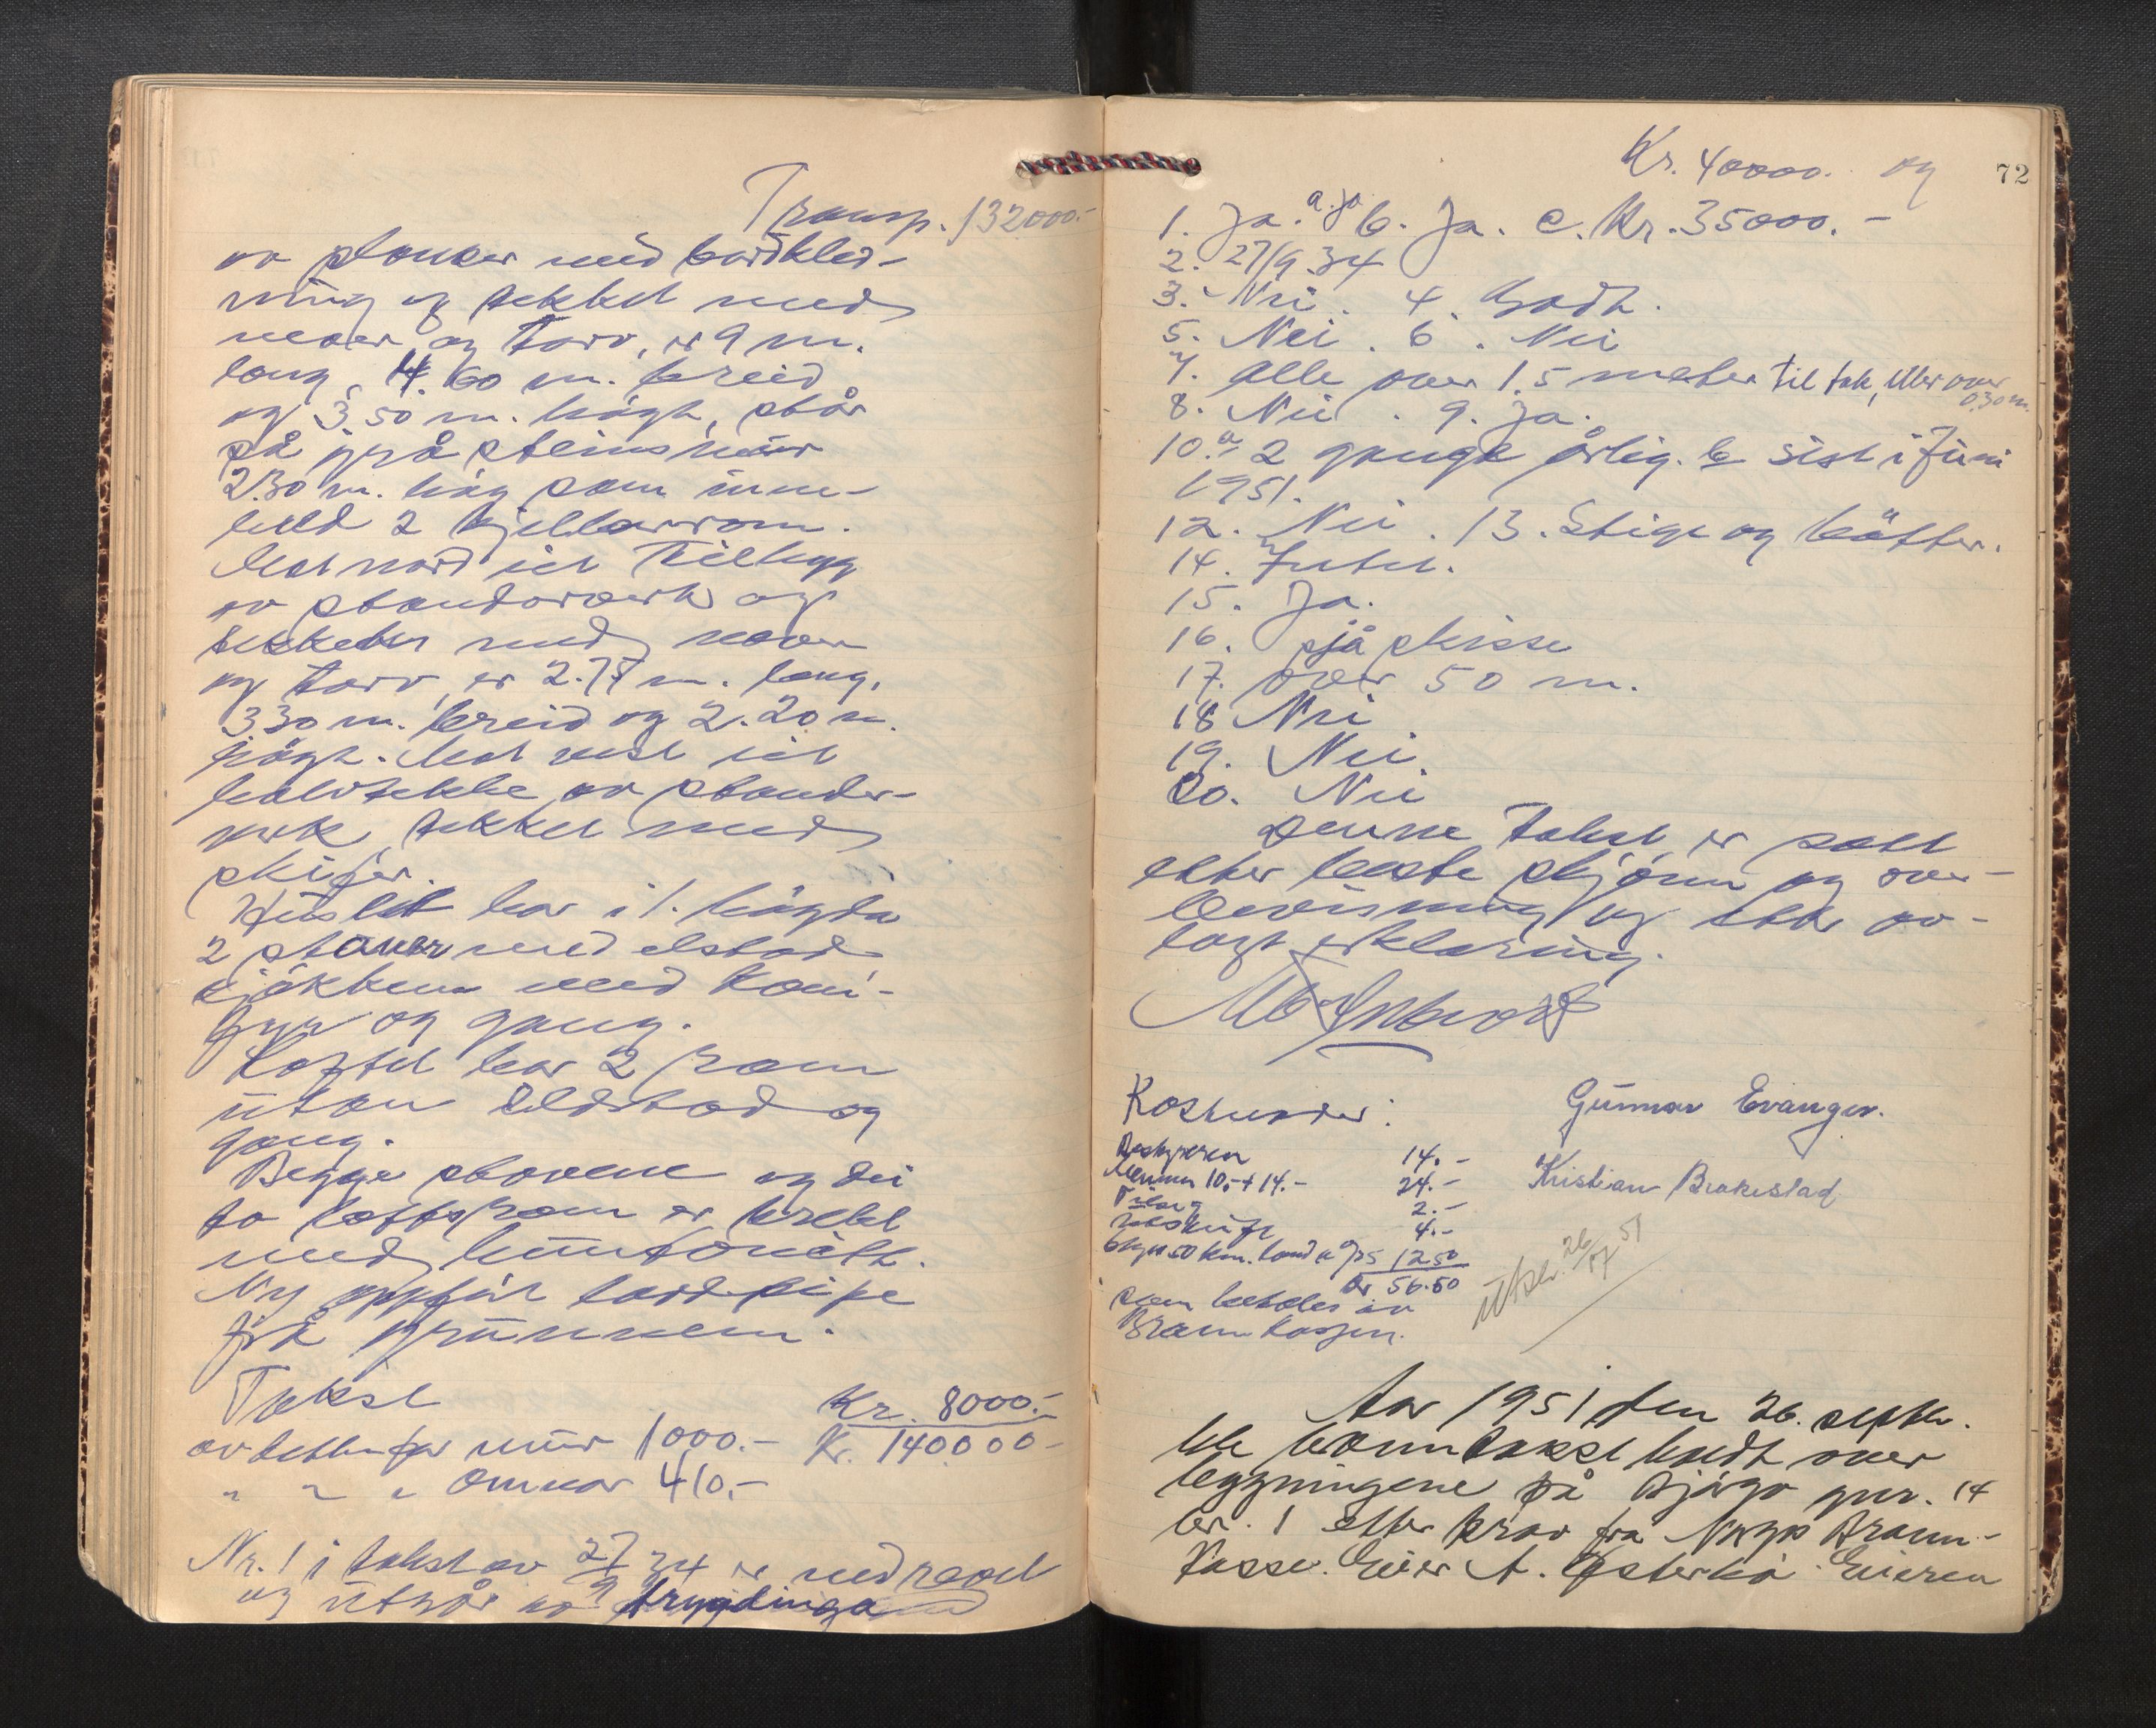 Transp. 132000.-
av plankar med bordkled-
ning og tekket med
never og torv, er 9 m.
lang, 4.60 m. breid
og 3.50 m. høgt, står
på gråsteinsmur
2.30 m. høg som inne-
held 2 kjellarrom.
Mot nord eit tilbygg
av standarverk og
tekket med never
og torv, er 2.75 m. lang,
3.30 m. breid og 2.20 m.
høgt. Mot vest eit
halvtekke av stander-
verk, tekket med
skifer.
Huset har i 1. høgda
2 stover med elstad
kjøkken med kom-
fyr og gang.
Loftet har 2 rom
utan eldstad og
gang.
Begge stovene og dei
to loftsrom er trekt
med huntonitt.
Ny oppført tordpipe
frå grunnen.
Takst Kr. 8000.-
av dette for mur 1000.- Kr. 140000-
" " " omnar 410.-
Nr. 1 i takst av 27/9 34 er nedraget
og utgår av trygdinga
Kr. 40000. og
72
1. Ja. a. ja b. Ja. c. Kr. 35000.-
2. 27/9 34
3. Nei. 4. Godt.
5. Nei. 6. Nei
7. alle over 1.5 meter til tak, eller over
0.30 m.
8. Nei. 9. Ja.
10. a 2 gonge årlig. b sist i Juni
1951.
12. Nei. 13. Stige og bøtter.
14. Intet.
15. Ja.
16. sjå skisse
17. over 50 m.
18 Nei
19. Nei.
20. Nei
Denne takst er satt
etter beste skjønn og over-
bevisning og etter av-
lagt erklæring.
Kostnader: Gunnar Evanger.
Bestyreren 14.-
Mennene 10,- + 14.- 24.- Kristian Brakestad
2.-
4.-
50 km. land a 0.25 12.50
Kr 56.50
som betales av
Brannkassen.
utskr. 26/9 51
Aar 1951 den 26. septbr.
ble branntakst holdt over
bygningene på gnr. 14
br. 1 etter krav fra Norges Brann-
kasse. Eier A. Eieren